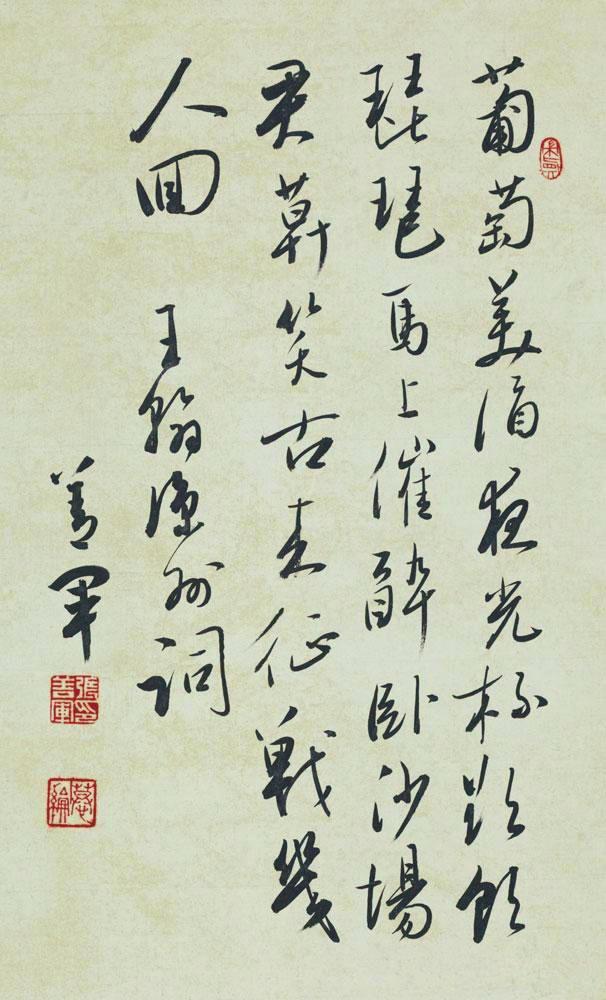 葡萄美酒夜光杯欲飲
琵琶馬上催醉卧沙場
君莫笑古来征戰幾
人回 王翰涼州詞
善軍
張印善軍